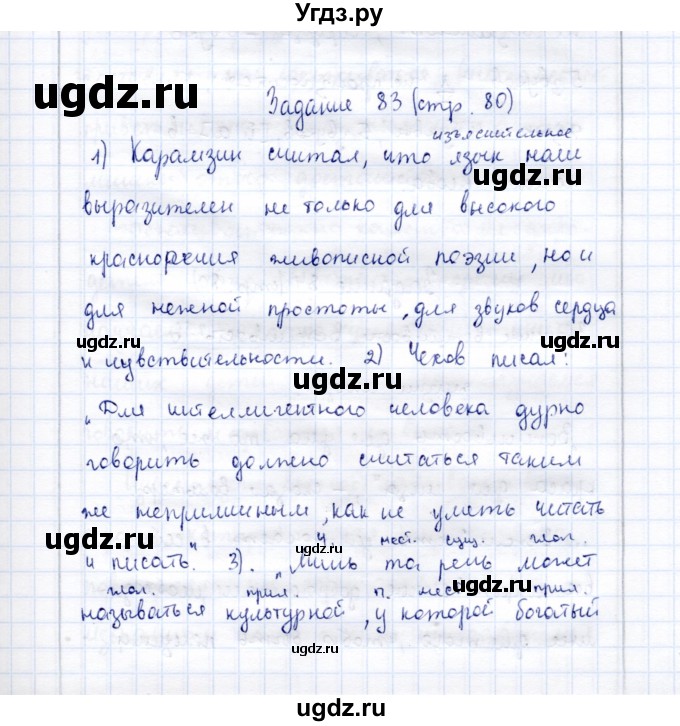 Угдз.ру
ugdz.ru
Задание 83 (стр. 80)
изъяснительное
1) Карамзин считал, что язык наш
ugdz.ru
выразителен не только для высокого
красноречия живописной поэзии, но и
для нежной простоты, для звуков сердца
ugdz.ru
и чувствительности. 2) Чехов писал:
ugdz.ru
„Для интеллигентного человека дурно
говорить должно считаться таким
же неприличным, как не уметь читать
ugdz.ru
ч. мест. сущ. глаг.
и писать". 3). „Лишь та речь может
глаг. прил. п. мест. прил.
называться культурной, у которой богатый
ugdz.ru
ugdz.ru